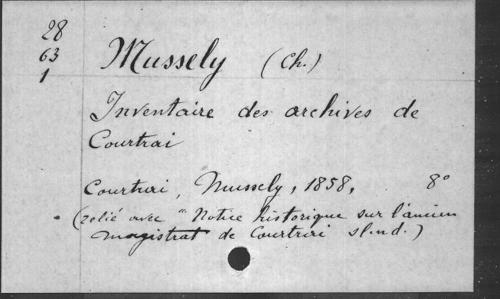 28
63
1
Mussely (Ch.)
Inventaire des archives de
Courtrai
Courtrai, Mussely, 1858, 8°
(relié avec "Notice historique sur l'ancien
magistrat de Courtrai sl.nd.)